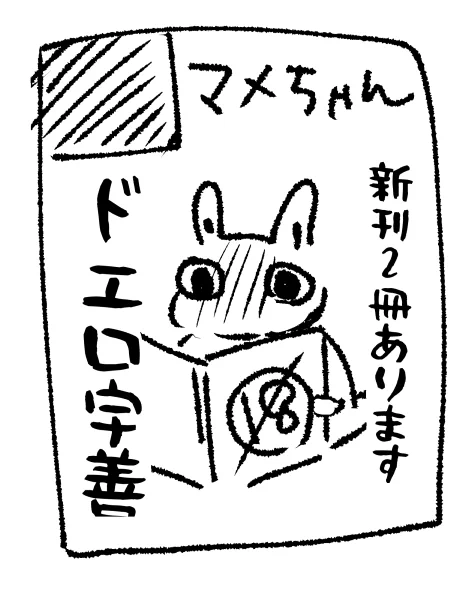 マメちゃん
新刊2冊あります
ドエロ字善
18